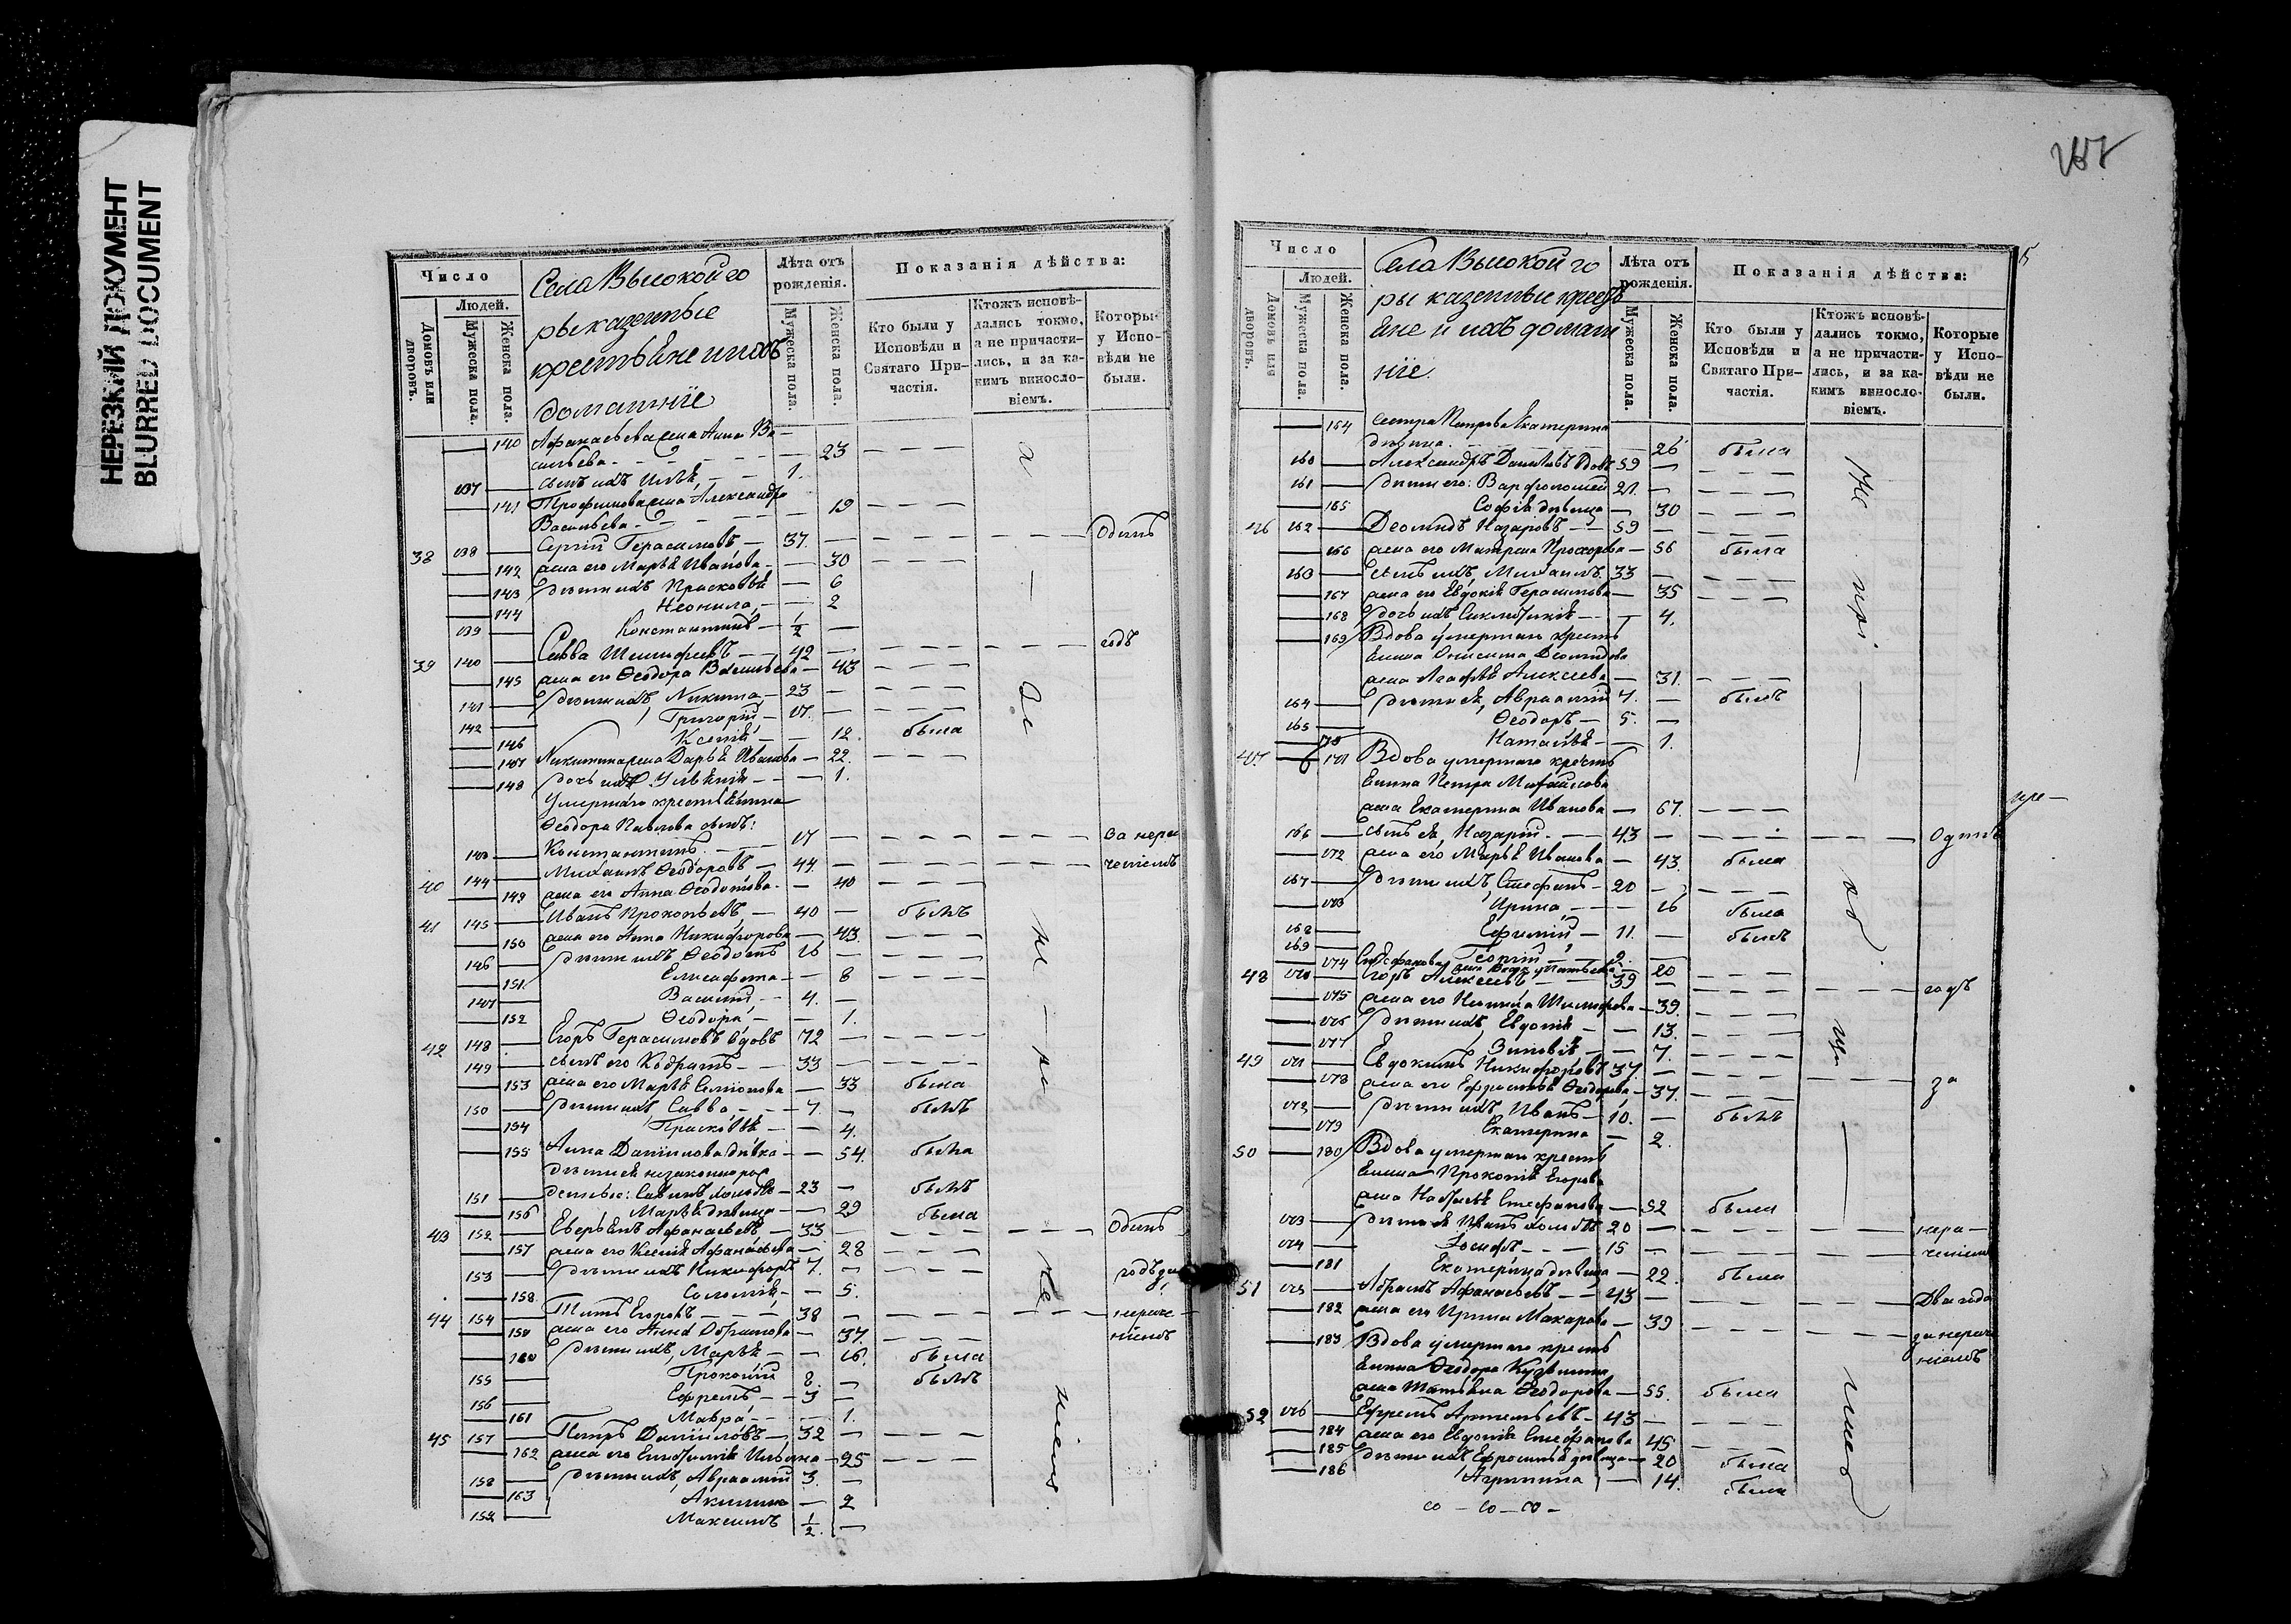 НЕРЕЗКИЙ ДОКУМЕНТ
BLURRED DOCUMENT
Число
Людей.
Домовъ или дворовъ.
Мужеска пола.
Женска пола.
Села Высокой го
ры казенные
крестьяне и ихъ
домашніе
Лѣта отъ рожденія.
Мужеска пола.
Женска пола.
Показанія дѣйства:
Кто были у Исповѣди и Святаго Причастія.
Ктожъ исповѣдались токмо, а не причастились, и за какимъ винословіемъ.
Которые у Исповѣди не были.
140 Афанасьева жена Анна Ва
сильева 23
137 сынъ ихъ Илья 1.
141 Трофимова жена Александра
Васильева 19
38 138 Сергій Герасимовъ 37. Одинъ
142 жена его Марья Иванова 30
143 дѣти ихъ Прасковья 6
144 Неонила 2
139 Константинъ 1/2
39 140 Савва Тимофеевъ 42 годъ
145 жена его Ѳеодора Васильева 43
141 дѣти ихъ, Никита 23
142 Григорій 17.
146 Ксенія 12. была
147 Никитина жена Дарья Иванова 22.
148 дочь ихъ Ульянія 1.
Умершаго крестьянина
Ѳеодора Павлова сынъ:
143 Константинъ 17 за нера
40 144 Михаилъ Ѳеодоровъ 44. ченіемъ
149 жена его Анна Ѳеодотова 40
41 145 Иванъ Прокопьевъ 40 былъ
150 жена его Анна Никифорова 43.
146 дѣти ихъ Ѳеодотъ 16
151. Елисафета 8
147 Василій 4.
152 Ѳеодора 1.
42 148 Егоръ Герасимовъ вдовъ 72
149 сынъ его Кодратъ 33
153 жена его Марья Семіонова 33 была
150 дѣти ихъ, Савва 7. былъ
154 Прасковья 4.
155 Анна Даниилова дѣвка 54. была
дѣти ея незаконнорож
денные: Савинъ холостъ 23 былъ
151
156 Марья дѣвица 29 была
43 152 Аверьянъ Афанасьевъ 33 Одинъ
157 жена его Ксенія Афанасьева 28
153 дѣти ихъ Никифоръ 7. годъ за
158. Соломія 5.
44 154 Титъ Егоровъ 38 нераче
159 жена его Анна Ефимова 37. ніемъ
160 дѣти ихъ, Марья 16. была
155 Прокопій 8. былъ
156 Ефремъ 3
161 Мавра 1.
45 157 Петръ Данииловъ 32
162 жена его Евфимія Ильина 25
158 дѣти ихъ, Авраамій 3.
163 Акилина 2
159 Максимъ 1/2.
Число
Людей.
Домовъ или дворовъ.
Мужеска пола.
Женска пола.
Села Высокой го
ры казенные кресть
яне и ихъ домаш
ніе.
Лѣта отъ рожденія.
Мужеска пола.
Женска пола.
Показанія дѣйства:
Кто были у Исповѣди и Святаго Причастія.
Ктожъ исповѣдались токмо, а не причастились, и за какимъ винословіемъ.
Которые у Исповѣди не были.
164 сестра Петрова Екатерина
дѣвица 26 была
160 Александръ Даниловъ вдовъ 59
161 дѣти его: Варфоломей 21.
165 Софія дѣвица 30
46 162 Деомидъ Назаровъ 59
166 жена его Матрена Прохорова 56 была
163 сынъ ихъ, Михаилъ 33
167 жена его Евдокія Герасимова 35
168 дочь ихъ Синклитикія 4.
169 Вдова умершаго кресть
янина Онисима Деомидова
жена Агафья Алексеева 31.
164 дѣти ея, Авраамій 7. былъ
165 Ѳеодоръ 5.
170 Наталья 1.
47. 171 Вдова умершаго кресть
янина Петра Михайлова
жена Екатерина Иванова 67.
166 сынъ ея Назарій 43 Одинъ
172 жена его Марья Иванова 43. была
167 дѣти ихъ, Стефанъ 20
173 Ирина 16 была
168 Ефимій 11. былъ
169 Георгій 2.
174 20
48 170 Егоръ Алексеевъ 39 годъ
175 жена его Неонила Тимофеева 39.
176 дѣти ихъ, Евдокія 13.
177 Зиновія 7.
49 171 Евдокимъ Никифоровъ 37. за
178 жена его Ефросинья Ѳеодорова 37.
172 дѣти ихъ Иванъ 10. былъ
179 Екатерина 2.
50 180 Вдова умершаго кресть
янина Прокопія Егорова
жена Настасья Стефанова 52 была
173 дѣти ея Иванъ холостъ 20 нера
174 Іосифъ 15 ченіемъ
181 Екатерина дѣвица 22. была
51 175 Абрамъ Афанасьевъ 43 Два года
182 жена его Ирина Макарова 39
183 Вдова умершаго кресть за нераче
янина Ѳеодора Кузьмина ніемъ
жена Татьяна Ѳеодорова 55. была
52 176 Ефремъ Артемьевъ 43
184 жена его Евдокія Стефанова 45
185 дѣти ихъ, Ефросинья дѣвица 20 была
186 Агрипина 14. была